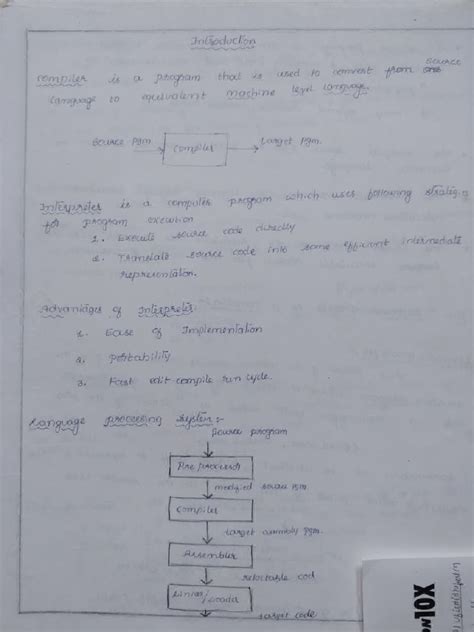 Introduction
source
Compiler is a program that is used to convert from
language to equivalent machine level language.
source pgm. Compiler target pgm.
Interpreter is a computer program which uses following strategies
for program execution
1. Execute source code directly
2. Translate source code into some efficient intermediate
representation.
Advantages of Interpreter:
1. Ease of Implementation
2. Portability
3. Fast edit compile run cycle.
Language processing system :-
source program
modified source pgm.
Compiler
target assembly pgm.
Assembler
relocatable cod
target code
X01